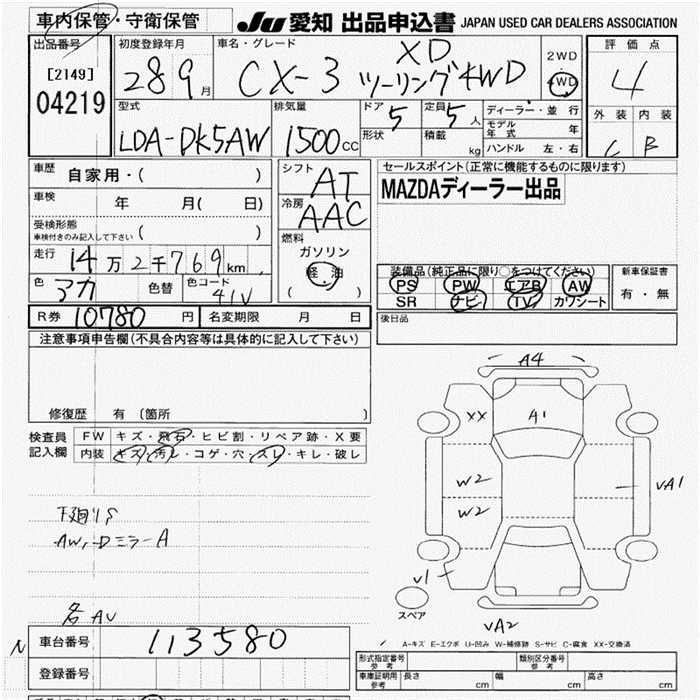 車内保管・守衛保管
JU 愛知 出品申込書 JAPAN USED CAR DEALERS ASSOCIATION
出品番号 初度登録年月 車名・グレード 2WD 評価点
[2149] 28 9月 CX-3 XD ツーリング 4WD 4WD 4
04219
型式 排気量 ドア 5 定員 5人 ディーラー・並行 外装 内装
LDA-DK5AW 1500cc 形状 積載 kg モデル年式 年 C B
ハンドル 左・右
車歴 自家用・( ) シフト AT セールスポイント(正常に機能するものに限ります)
車検 年 月( 日) 冷房 AAC MAZDAディーラー出品
受検形態
車検付きのみ記入して下さい ( ) 燃料
走行 14万2千769km ガソリン
軽油
( )
装備品(純正品に限り○をつけてください) 新車保証書
色 アカ 色替 色コード 41V PS PW エアB AW 有・無
SR ナビ TV カワシート
R券 10780円 名変期限 月 日 後日品
注意事項申告欄(不具合内容等は具体的に記入して下さい)
修復歴 有 〔箇所 〕
検査員記入欄 FW キズ・飛石・ヒビ割・リペア跡・X要
内装 キズ・汚レ・コゲ・穴・スレ・キレ・破レ
下廻りS
AW、Dミラー A
A4
XX A1
W2
W2
VA1
V1
スペア
VA2
名 AU
N 車台番号 113580
登録番号
A-キズ E-エクボ U-凹み W-補修跡 S-サビ C-腐食 XX-交換済
形式指定番号 参考 類別区分番号 参考
車庫証明用 参考 長さ cm 幅 cm 高さ cm